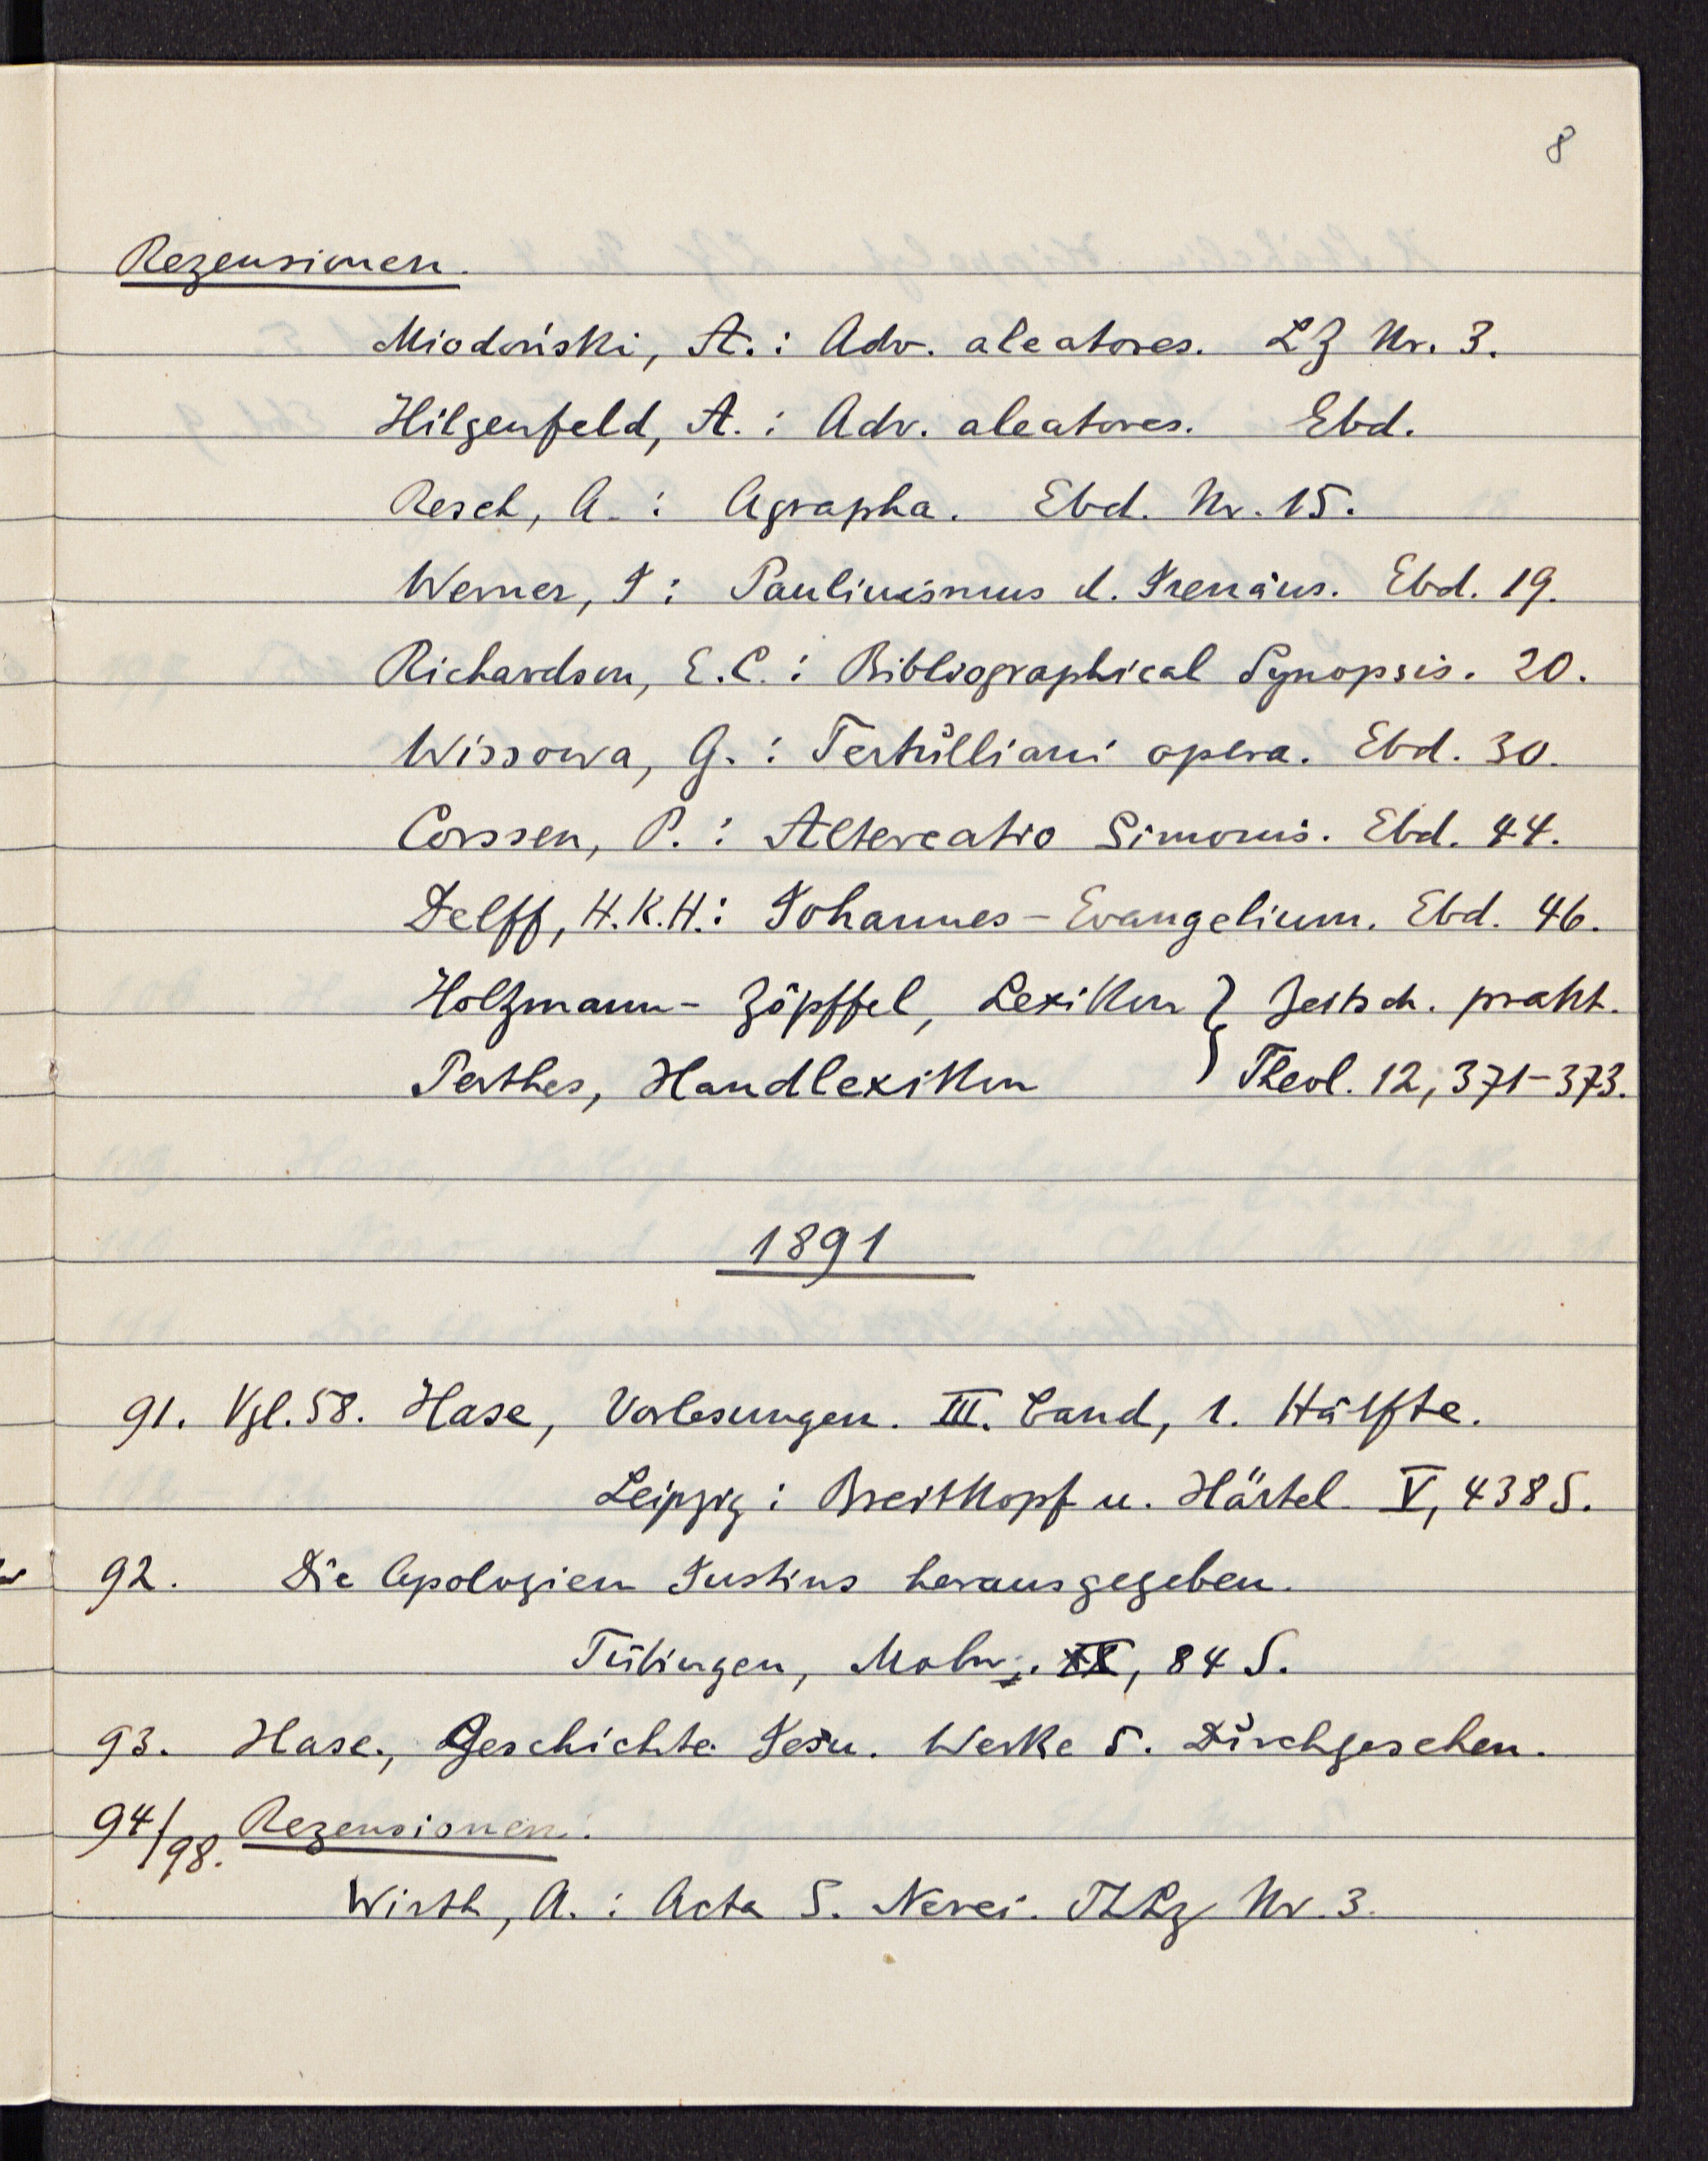 8
Rezensionen.
Miodoński, A.: Adv. aleatores. LZ Nr. 3.
Hilgenfeld, A.: Adv. aleatores. Ebd.
Resch, A.: Agrapha. Ebd. Nr. 15.
Werner, J: Paulinismus d. Irenäus. Ebd. 19.
Richardson, E.C.: Bibliographical Synopsis. 20.
Wissowa, G.: Tertulliani opera. Ebd. 30.
Corssen, P.: Altercatio Simonis. Ebd. 44.
Delff, H.K.H.: Johannes-Evangelium. Ebd. 46.
Holtzmann-Zöpffel, Lexikon } Zeitsch. prakt.
Perthes, Handlexikon } Theol. 12, 371-373.
1891
91. Vgl. 58. Hase, Vorlesungen. III. Band, 1. Hälfte.
Leipzig: Breitkopf u. Härtel. V, 438 S.
92. Die Apologien Justins herausgegeben.
Tübingen, Mohr, , 84 S.
93. Hase, Geschichte Jesu. Werke 5. Durchgesehen.
94/98. Rezensionen.
Wirth, A.: Acta S. Nerei. ThLz Nr. 3.